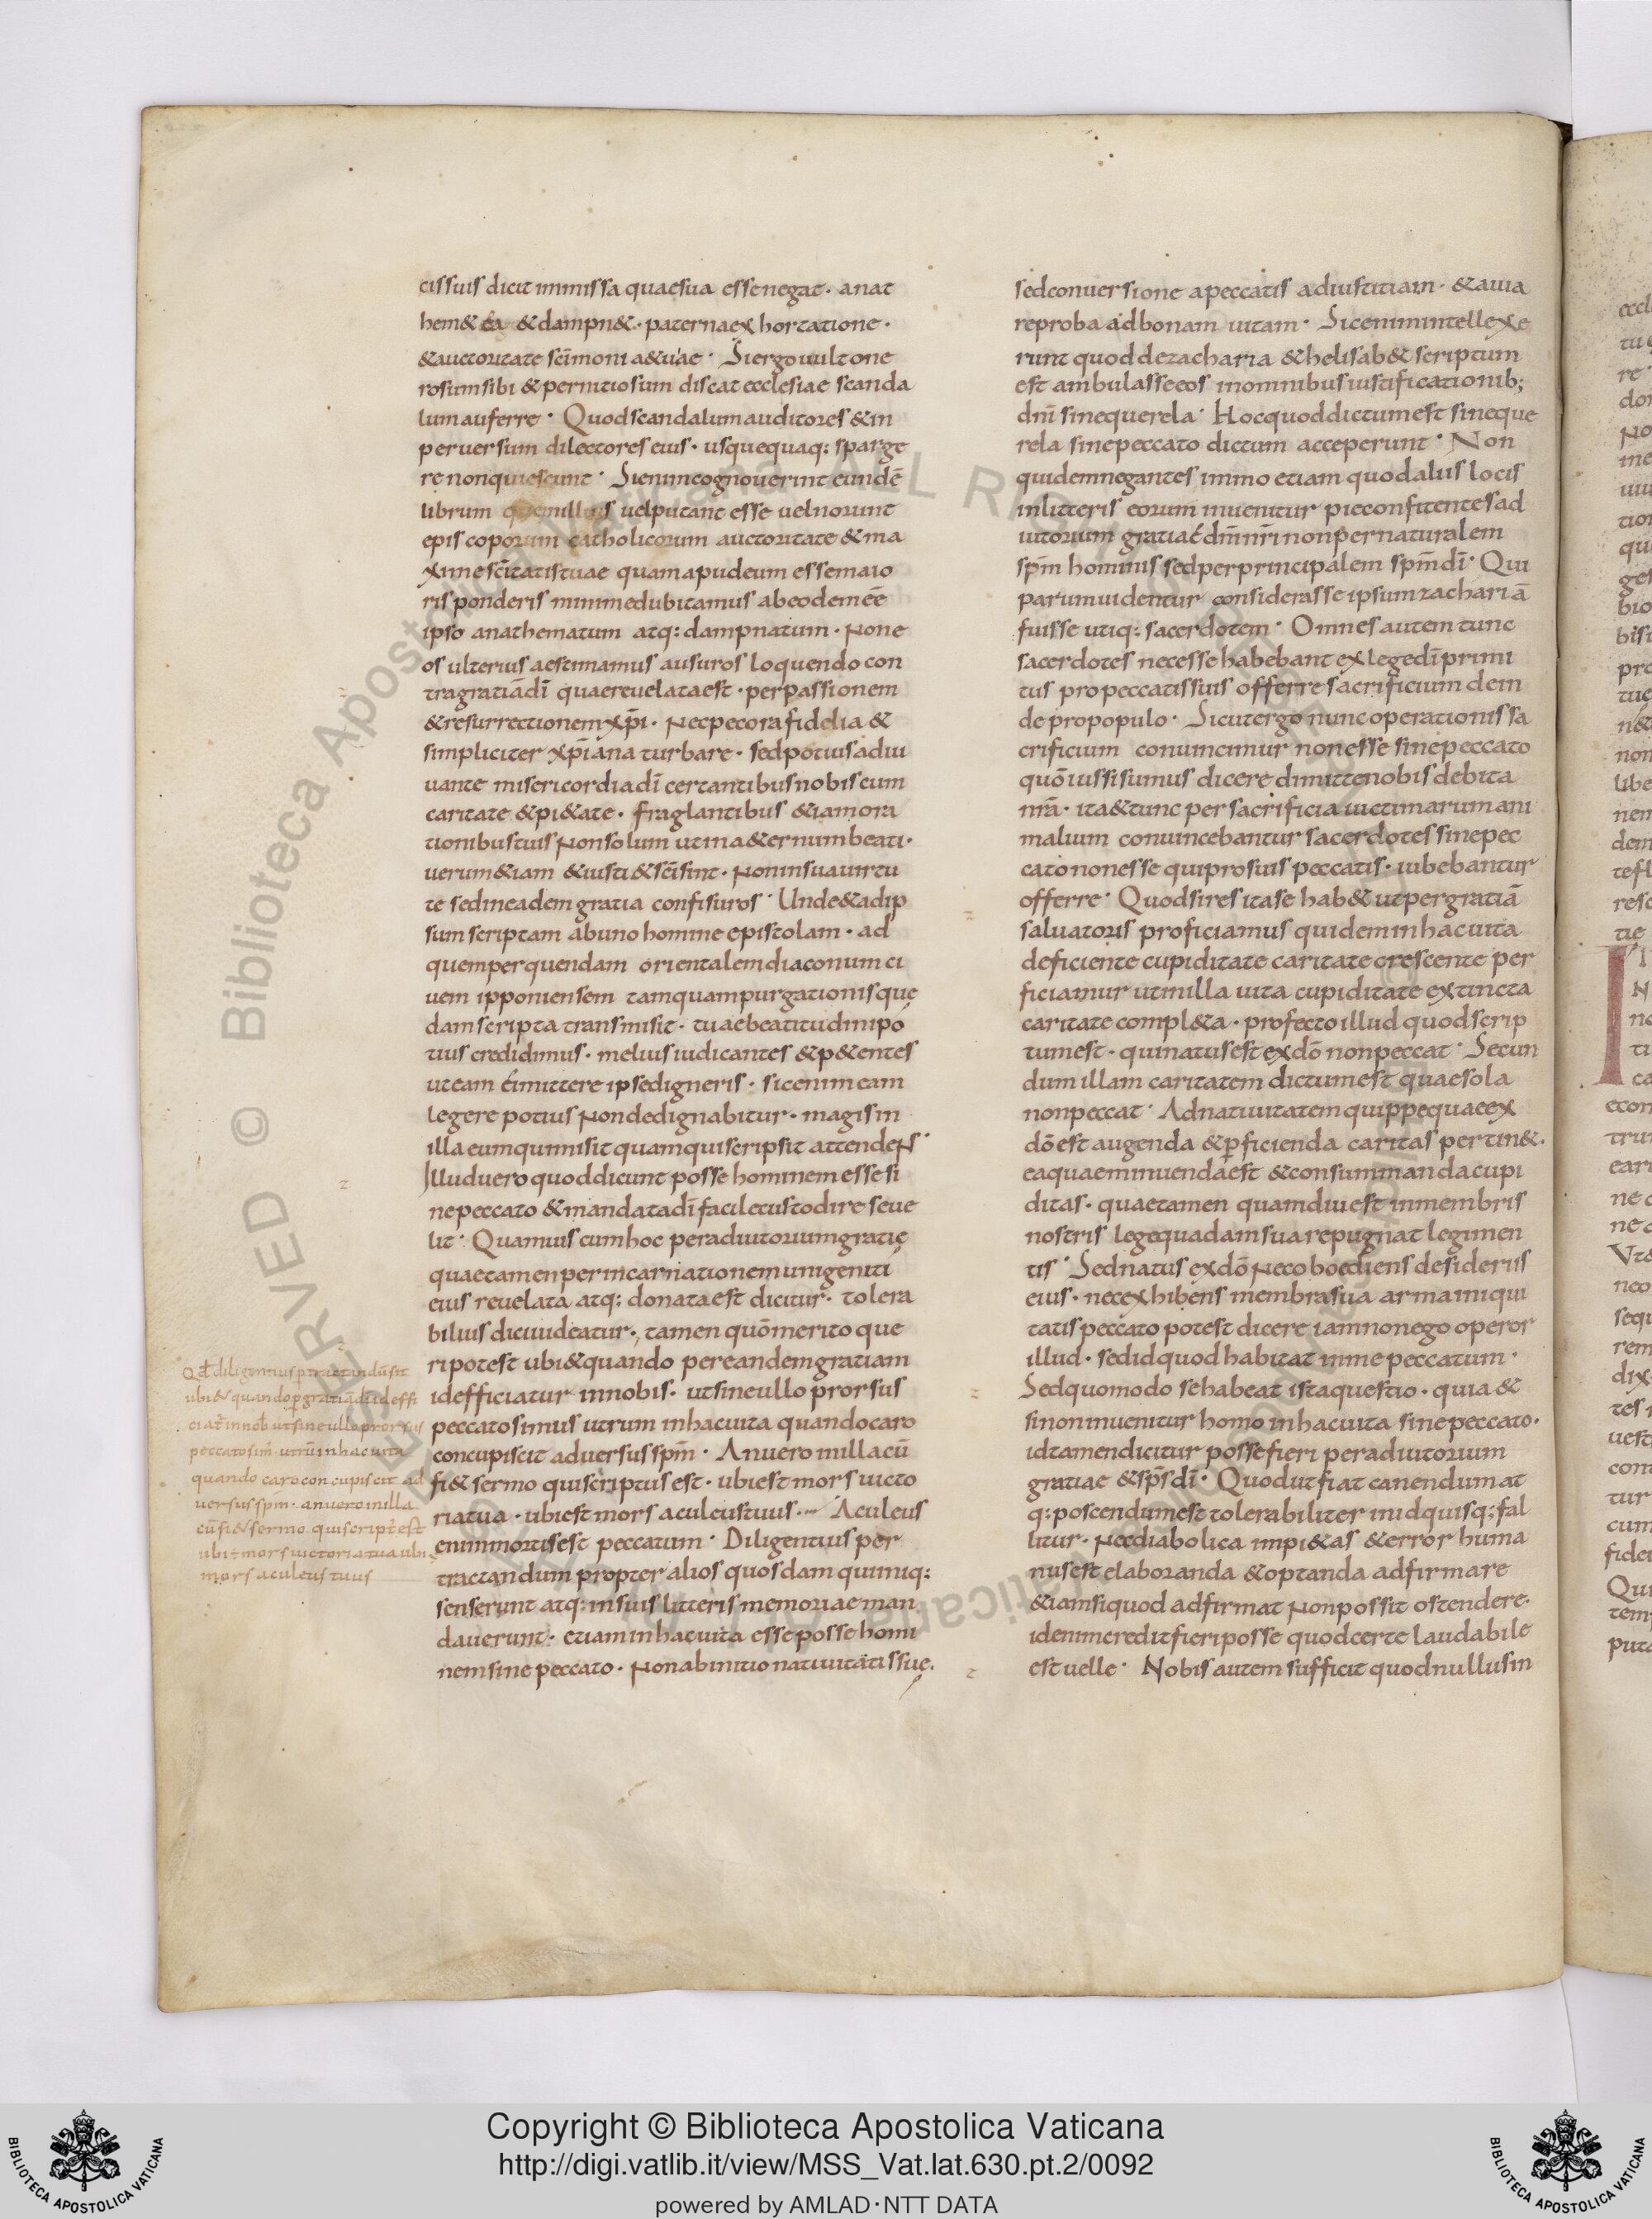 cissuis dicit inmissa quaesua essenegat · anat
hem& ea &dampn& · paternaexhortatione ·
&auctoritate scīmonia&uae · Siergouult one
rosumsibi &pernitiosum discat ecclesiae scanda
lumauferre · Quodscandalumauditores &in
peruersum dilectores eius · usquequaq: sparge
re nonquiescunt · Sienimcognouerint eundē
librum quemillius uelputant esse uelnorunt
episcoporum catholicorum auctoritate &ma
ximescītatistuae quamapudeum essemaio
ris ponderis minimedubitamus abeodemeē
ipso anathematum atq: dampnatum · None
os ulterius aestimamus ausuros loquendo con
tragratiādī quaereuelataest · perpassionem
&resurrectionemxp̄i · Necpecorafidelia &
simpliciter xp̄iana turbare · sedpotiusadiu
uante misericordiadī certantibusnobiscum
caritate &pi&ate · fraglantibus &iamora
tionibustuis Nonsolum utina&ernumbeati ·
uerum&iam &iusti&scīsint · Noninsuauirtu
te sedineademgratia confisuros · Unde&adip
sum scriptam abuno homine epistolam · ad
quemperquendam orientalemdiaconum ci
uem ipponiensem tamquampurgationisque
damscripta transmisit · tuaebeatitudinipo
tius credidimus · meliusiudicantes &p&entes
uteam ei mittere ipsedigneris · sicenim eam
legere potius Nondedignabitur · magisin
illa eumquimisit quamquiscripsit attendeNS ·
Illuduero quoddicunt posse hominem esse si
nepeccato &mandatadī facilecustodire seue
lit · Quamuis cumhoc peradiutoriumgratię
quaetamenperincarnationemunigeniti
eius reuelata atq: donataest dicitur · tolera
bilius diciuideatur ·, tamen quōmerito que
ripotest ubi&quando pereandemgratiam
idefficiatur innobis · utsineullo prorsus
peccatosimus utrum inhacuita quandocaro
concupiscit aduersus sp̄m · Anuero inillacū
fi& sermo quiscriptus est · ubiestmors uicto
riatua · ubiest mors aculeustuus · Aculeus
enimmortisest peccatum · Diligentius per
tractandum propter alios quosdam quiuniq:
senserunt atq: insuis litteris memoriae man
dauerunt · etiaminhacuita esseposse homi
nemsine peccato · Nonabinitio natiuitatissuę ·
Qd̄ diligentius ptractandū sit
ubi& quandop gratiādī id effi
ciat̄ innob̄ utsineulloprorsus
peccatosim̄ utrū inhacuita
quando caroconcupiscit ad
uersus sp̄m · anueroinilla
cūfi& sermo quiscript̄ est
ubi ÷ mors uictoriatua ubi
mors aculeus tuus
sedconuersione apeccatis adiustitiam · &auia
reproba adbonam uitam · Sicenimintellexe
runt quoddezacharia &helisab& scriptum
est ambulasseeos inomnibusiustificationib;
dnī sinequerela · Hocquoddictumest sineque
rela sinepeccato dictum acceperunt · Non
quidemnegantes immo etiam quodaliis locis
inlitteris eorum inuenitur pieconfitentesad
iutorium gratiae dn̄i nr̄i nonpernaturalem
sp̄m hominis sedperprincipalem sp̄mdī · Qui
parumuidentur considerasse ipsumzachariā
fuisse utiq: sacerdotem · Omnesautemtunc
sacerdotes necessehabebant exlegedī primi
tus propeccatissuis offerresacrificium dein
de propopulo · Sicutergo nuncoperationissa
crificium conuincimur nonesse sinepeccato
quōiussisumus dicere dimittenobisdebita
nr̄a · ita&tunc persacrificia uictimarumani
malium conuincebantur sacerdotes sinepec
cato nonesse quiprosuis peccatis · iubebantur
offerre · Quodsires itase hab& utpergratiā
saluatoris proficiamus quideminhacuita
deficiente cupiditate caritate crescente per
ficiamur utinilla uita cupiditate extincta
caritate compl&a · profecto illud quodscrip
tumest · quinatusest exdō nonpeccat · Secun
dum illam caritatem dictumest quaesola
nonpeccat · Adnatiuitatemquippequaeex
dō est augenda &pficienda caritas pertin& ·
eaquaeminuendaest &consummandacupi
ditas · quaetamen quamdiuest inmembris
nostris legequadamsuarepugnat legimen
tis · Sednatus exdō Necoboediens desideriis
eius · necexhibens membrasua armainiqui
tatis peccato potest dicere iamnonego operor
illud · sedidquodhabitat inme peccatum ·
Sedquomodo sehabeat istaquestio · quia &
sinoninuenitur homo inhacuita sinepeccato ·
idtamendicitur possefieri peradiutorium
gratiae &sp̄sdī · Quodutfiat canendumat
q: poscendumest tolerabiliter inidquisq: fal
litur · Necdiabolica impi&as &error huma
nusest elaboranda &optanda adfirmare
&iamsiquod adfirmat Nonpossit ostendere ·
idenimcreditfieriposse quodcerte laudabile
estuelle · Nobisautemsufficit quodnullusin
Copyright © Biblioteca Apostolica Vaticana
http://digi.vatlib.it/view/MSS_Vat.lat.630.pt.2/0092
powered by AMLAD·NTT DATA
BIBLIOTECA APOSTOLICA VATICANA
BIBLIOTECA APOSTOLICA VATICANA